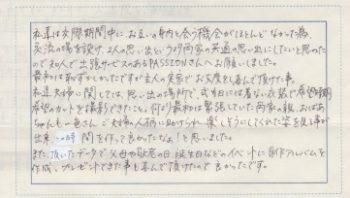 私達は交際期間中にお互いの身内と会う機会がほとんどなかった為、
交流の場を設け、2人の思い出というより両家の共通の思い出にしたいと思ったの
で知人で出張サービスのあるPASSIONさんへお願いしました。
最初は恥ずかしかったですが主人の実家でお支度も喜んで頂けた事。
私達夫婦に関しては、思い出の場所で、式当日には着ない衣装で
希望のカットを撮影できたこと。何より最初は緊張していた両家の親、おばあ
ちゃんも一色さんご夫婦の人柄に助けられ楽しそうにしてくれた姿を見る事が
出来、この時間を作って良かったなぁ!と思いました。
また、頂いたデータで父母や敬老の日、誕生日などのイベントに アルバムを
作成、プレゼントできた事も喜んで頂けたので良かったです。